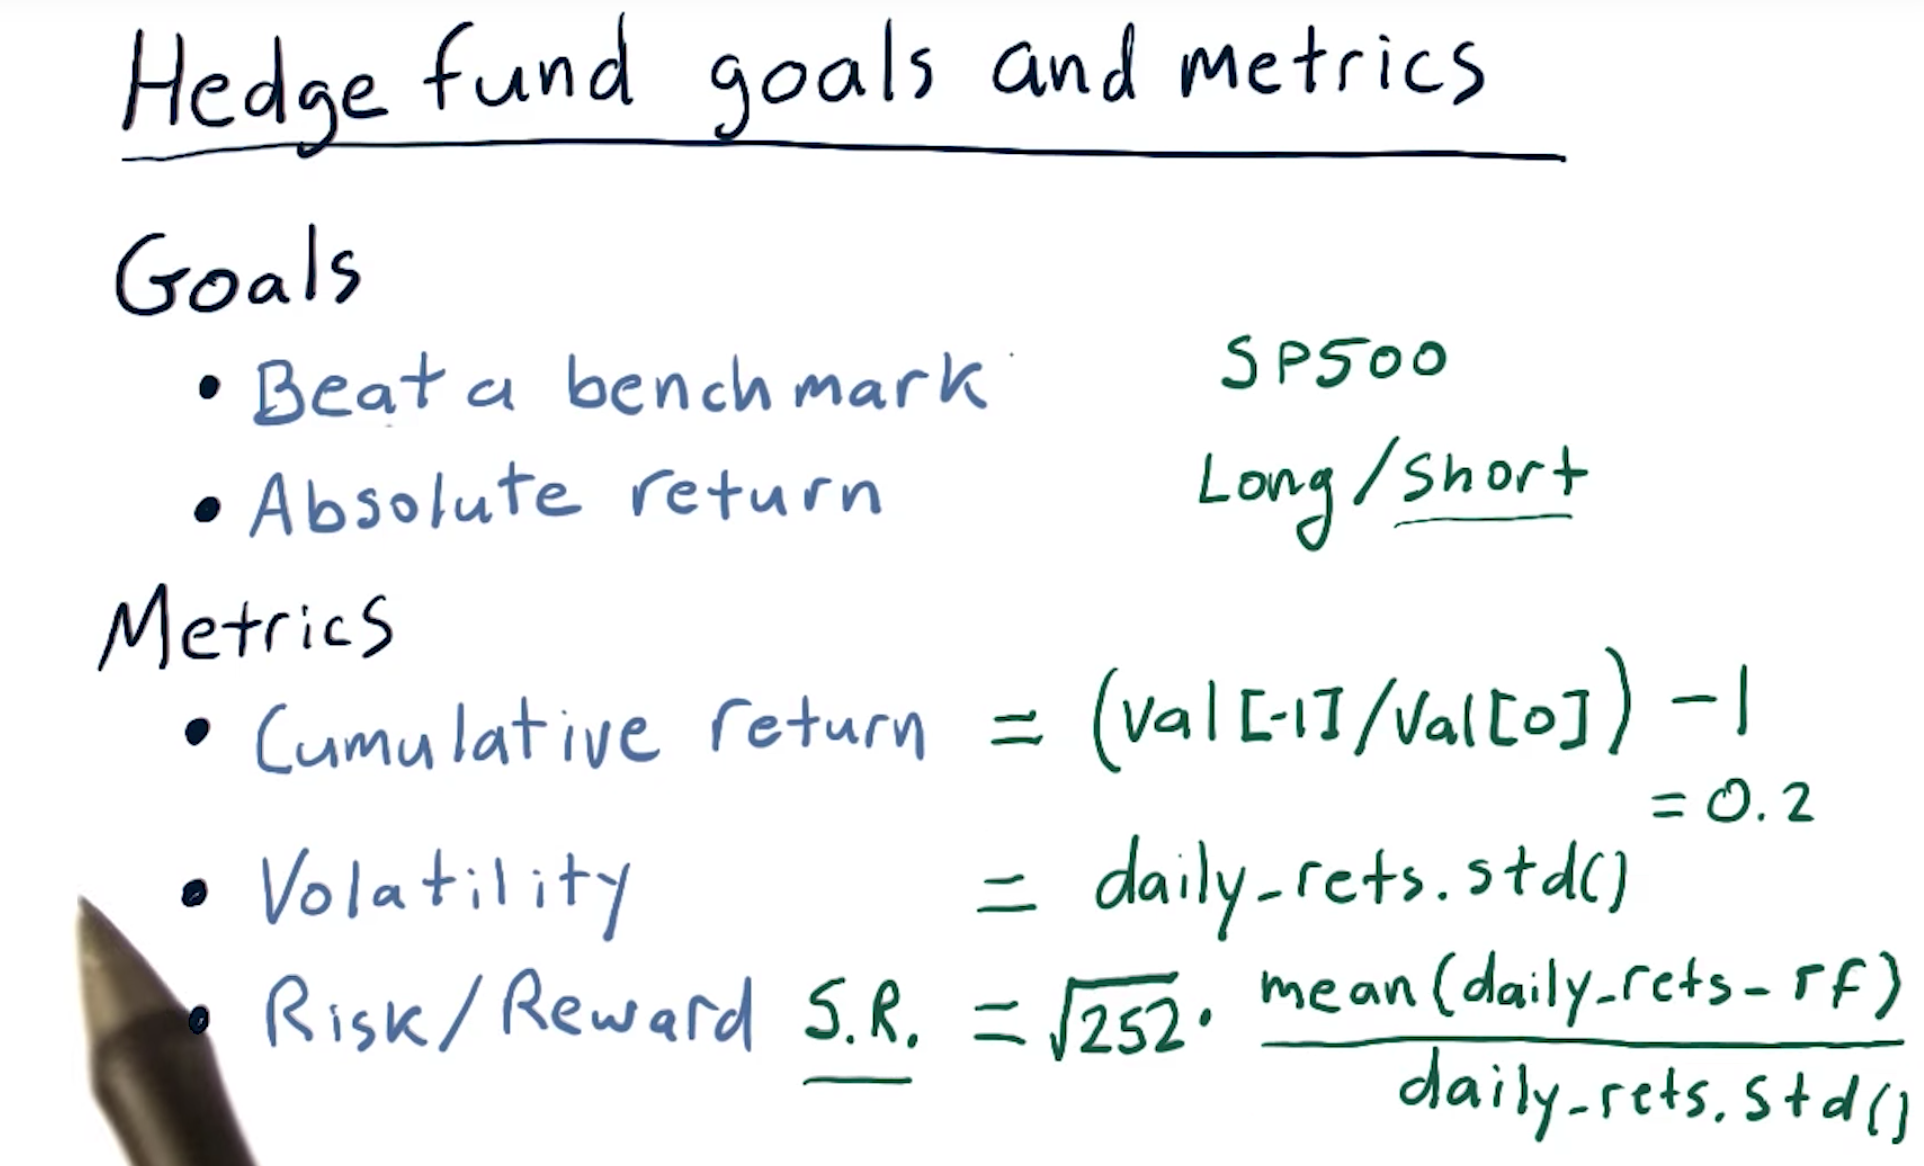 Hedge fund goals and metrics
Goals
• Beat a benchmark SP500
• Absolute return Long/Short
Metrics
• Cumulative return = (val[-1]/val[0]) - 1
= 0.2
• Volatility = daily_rets.std()
• Risk/Reward S.R. = √252 · mean(daily_rets - rf)
daily_rets.std()